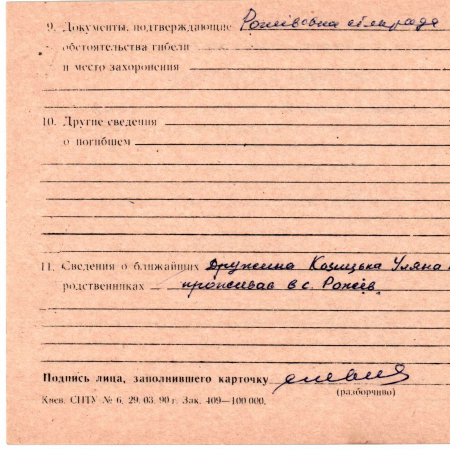 9. Документы, подтверждающие Рожівська сільрада
обстоятельства гибели
и место захоронения
10. Другие сведения
о погибшем
11. Сведения о ближайших Дружина Козицька Уляна
родственниках — проживає в с. Рожів.
Подпись лица, заполнившего карточку
(разборчиво)
Киев. СПТУ № 6. 29. 03. 90 г. Зак. 409—100 000.